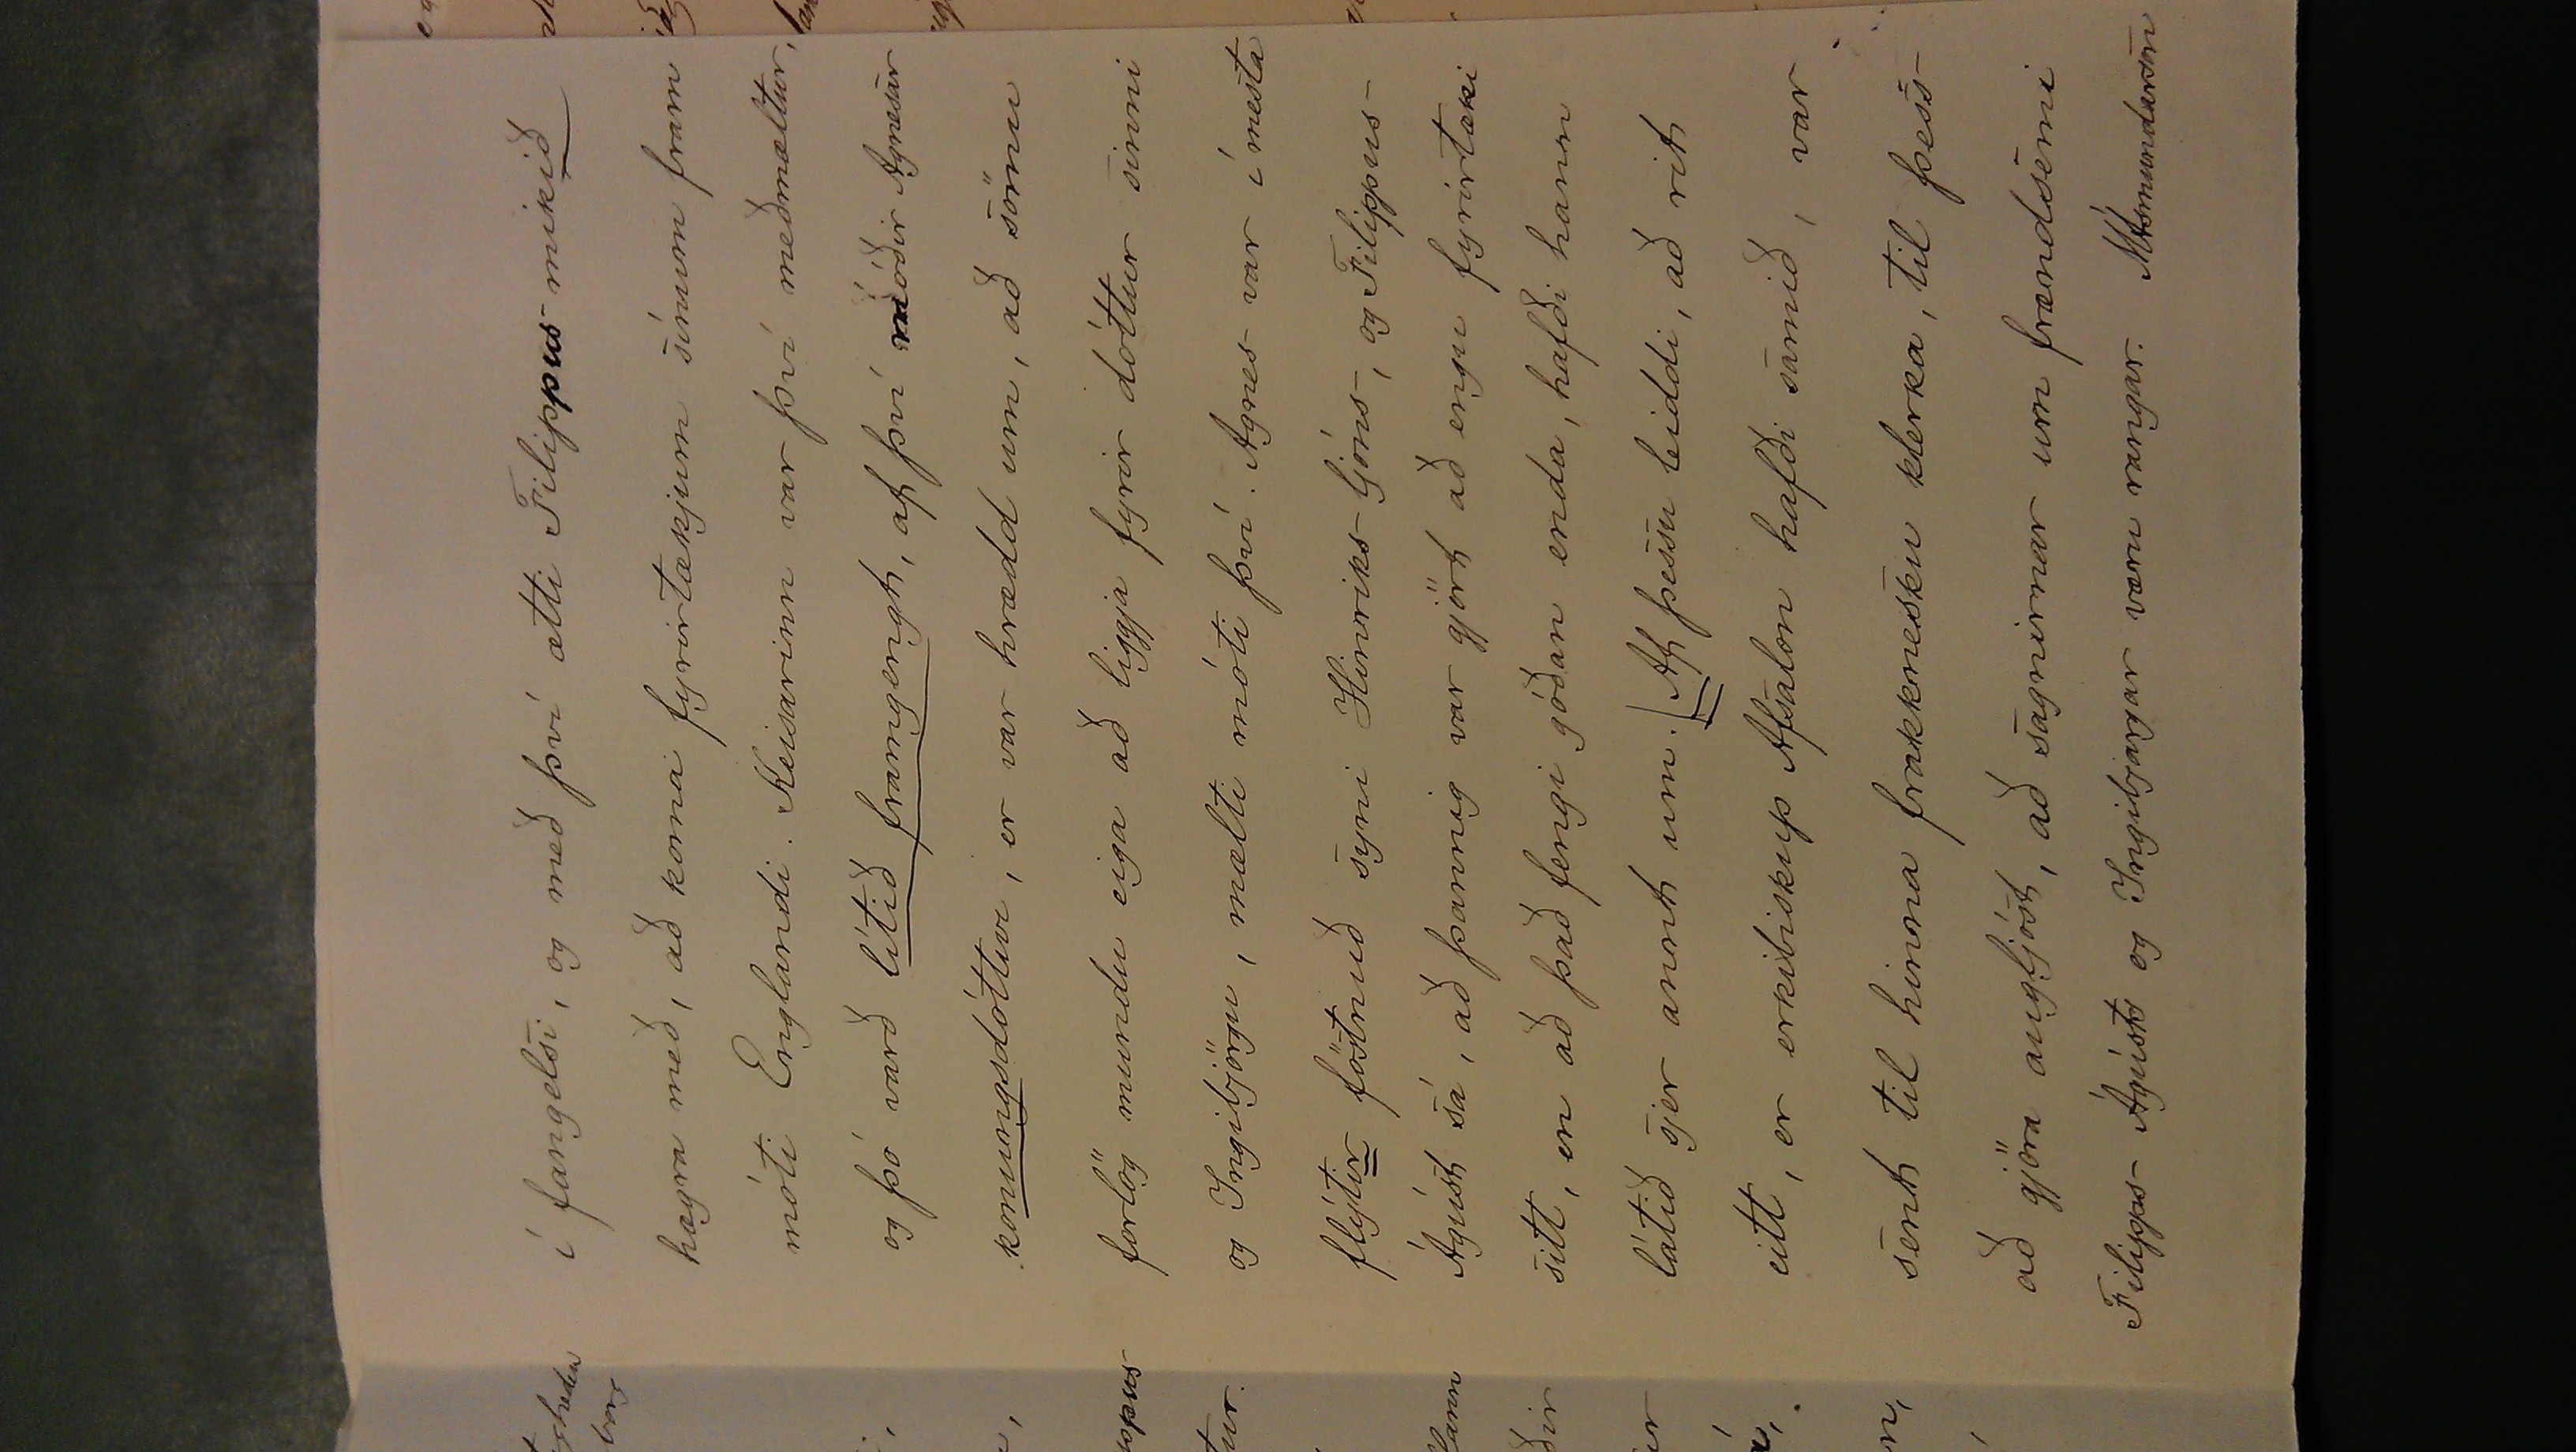 í fangelsi, og með því ætti Filippus mikið
hægra með, að koma fyrirtækjum sínum fram
móti Englandi. Keisarinn var því meðmæltur,
og þó varð lítið framgengt, af því móðir Agnesar
konungsdóttur, er var hrædd um, að sömu
forlög mundu eiga að liggja fyrir dóttur sinni
og Ingibjörgu, mælti móti því. Agnes var í mesta
flýtir föstnuð syni Hinriks ljóns, og Filippus
Ágúst sá, að þannig var gjört að engu fyrirtæki
sitt, en að það fengi góðan enda, hafði hann
látið sjer annt um. Af þessu leiddi, að rit
eitt, er erkibiskup Absalon hafði samið, var
sent til hinna frakknesku klerka, til þess
að gjöra augljóst, að sagnirnar um frændsemi
Filipps Ágústs og Ingibjargar væru rangar. MÁsmundarson